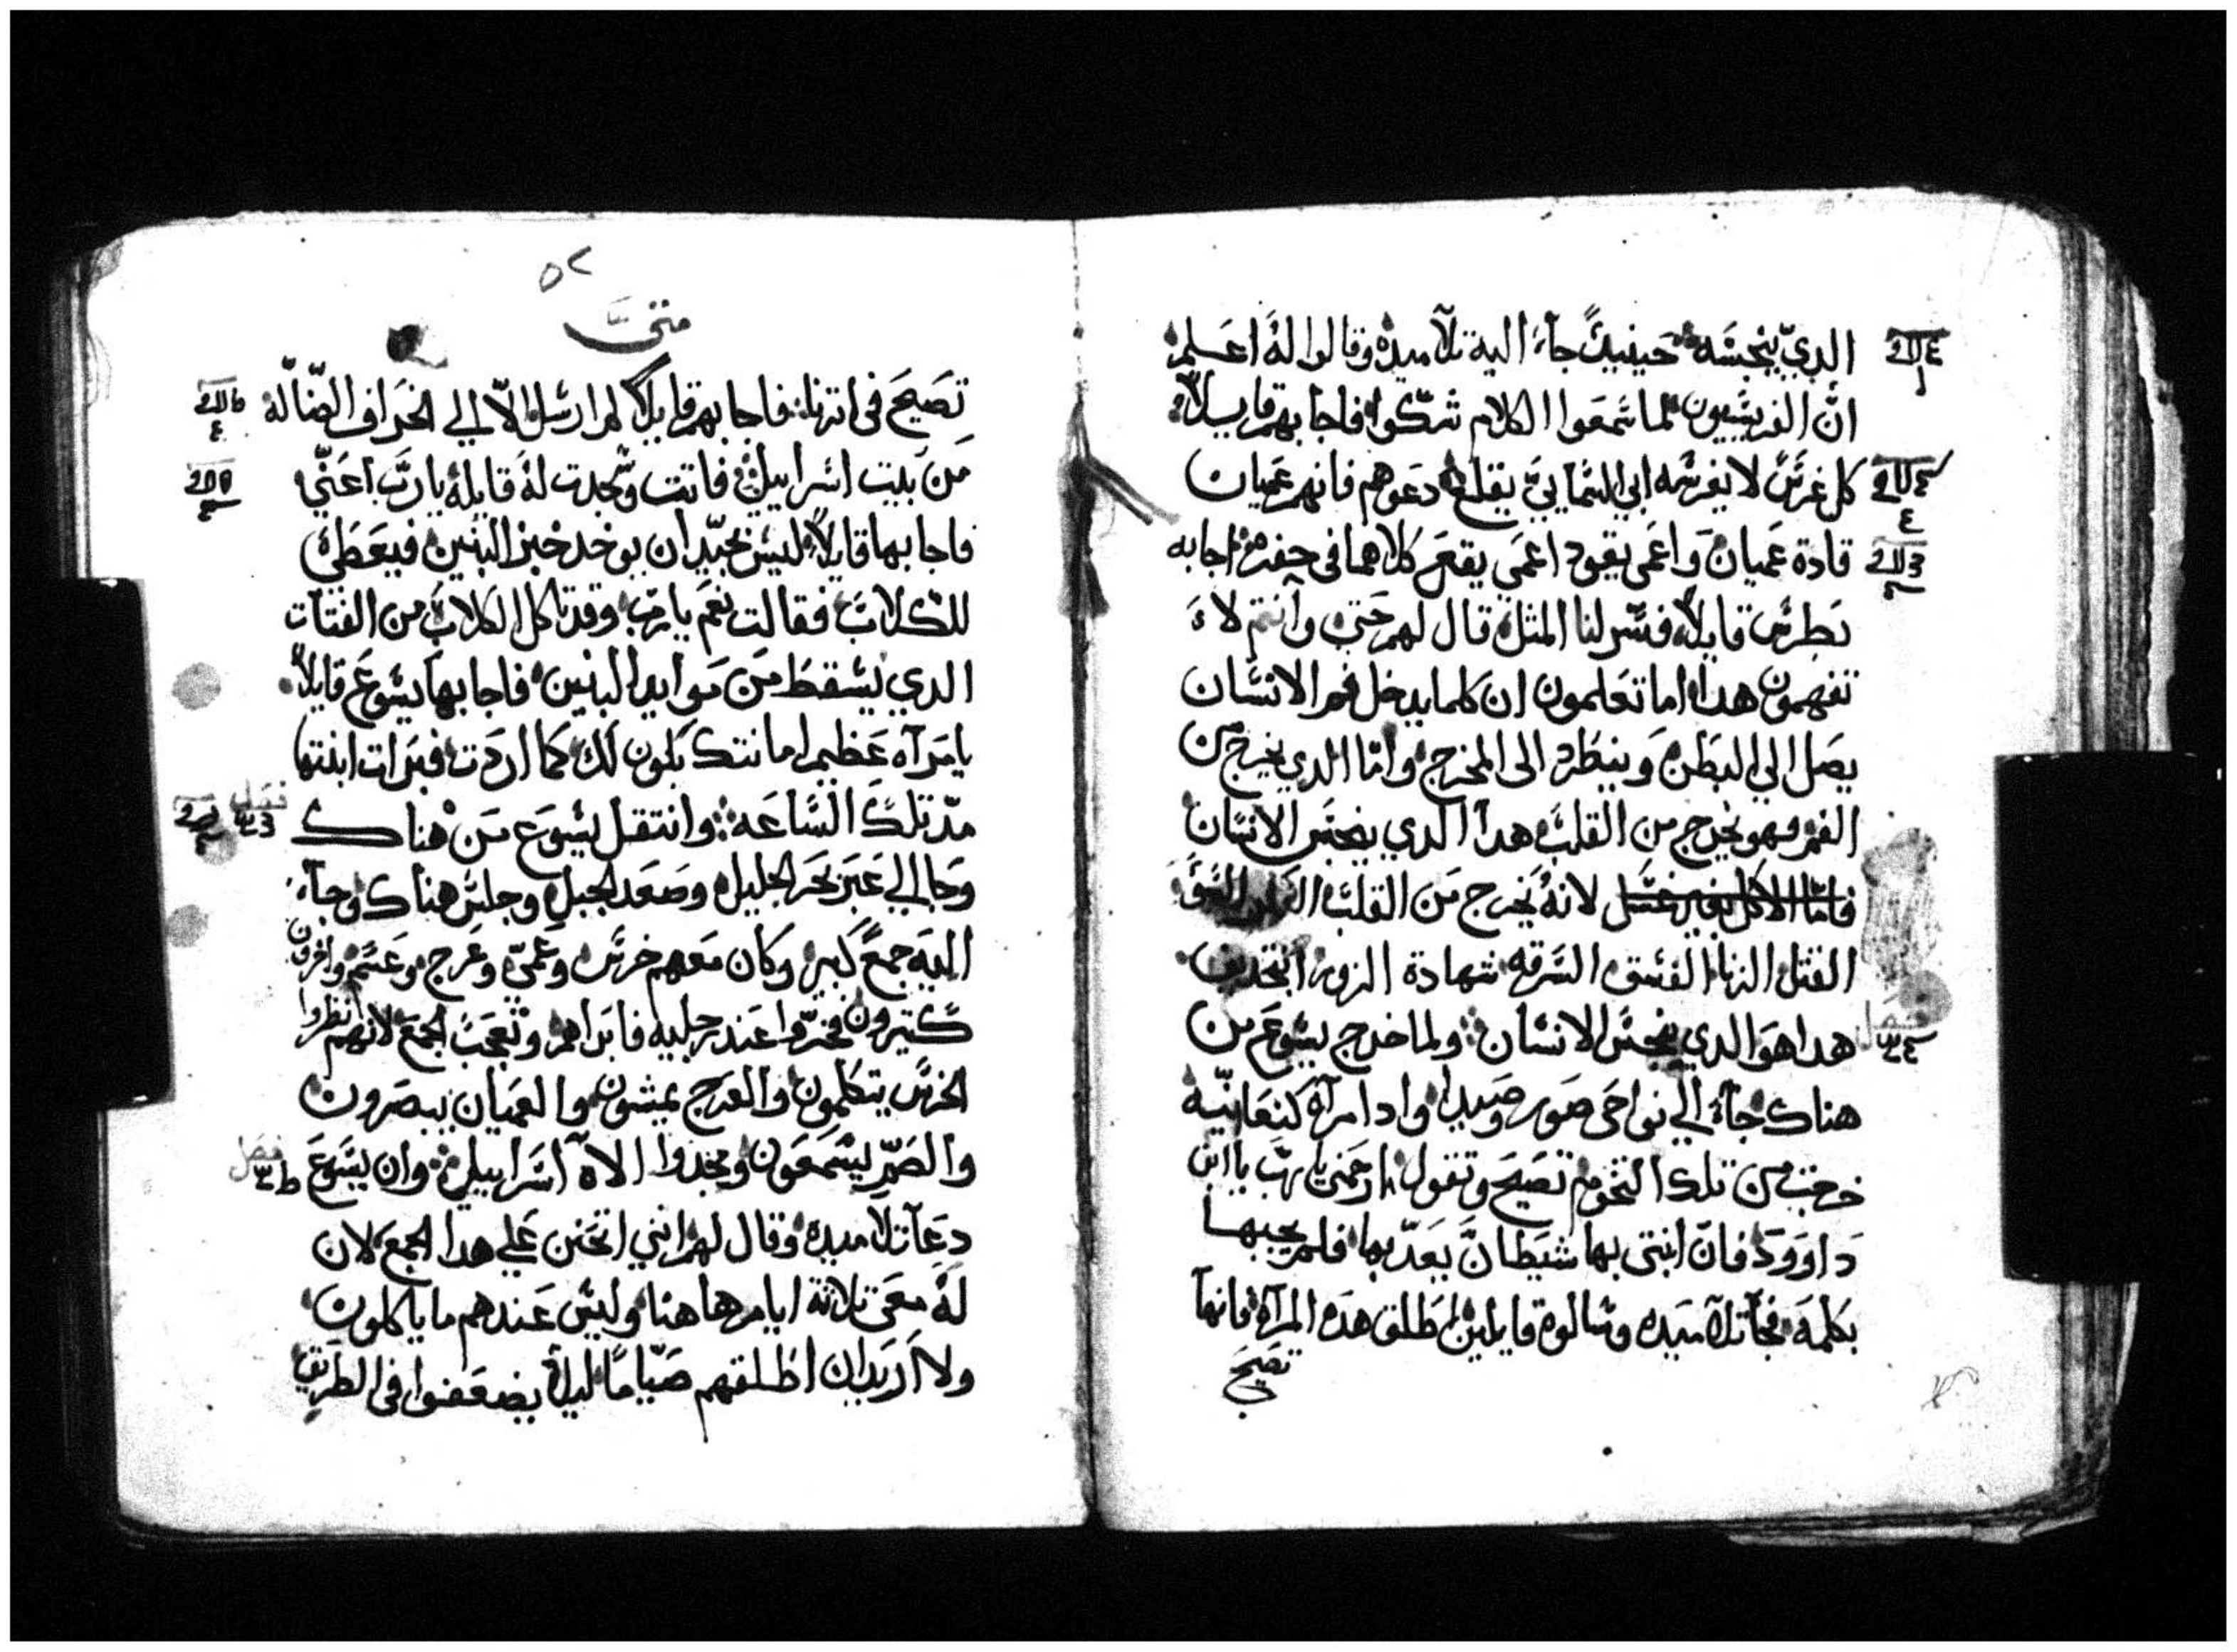 الدي ينجسه حينيدٍ جآء اليه تلاميده وقالوا له اعلم
ان الفريسيون لما سمعوا الكلام شكوا فاجابهم قايلاً
كل غرس لا يغرسه ابي السمايي يقلع دعوهم فانهم عميان
قادة عميان واعمى يقود اعمي يقعن كلاهما في حفره اجابه
بطرس قايلاً فسر لنا المثل قال لهم حتى وانتم لاء
تفهمون هدا اما تعلمون ان كلما يدخل فم الانسان
يصل الي البطن وينطرد الى المخرج واما الدي يخرج من
الفم فهو يخرج من القلب هدا الدي ينجس الانسان
فاما الاكل لانه يخرج من القلب السؤ
القتل الزنا الفسق السرقه شهادة الزور التجديف
هدا هو الدي ينجس الانسان ولما خرج يسوع من
هناك جآء الي نواحى صور وصيدا وادا مرآه كنعانيه
خرجت من تلك التخوم تصيح وتقول ارحمني يا رب يا ابن
داوود فان ابنتي بها شيطان يعدبها فلم يجبها
بكلمه فجآ تلاميده وسالوه قايلين اطلق هده المرآه فانها
تصيح
فصل
٥٢
متى
تصيح في اترنا فاجابهم قايلاً لم ارسل الا الي الخراف الضاله
من بيت اسراييل فاتت وسجدت له قايله يا رب اعني
فاجابها قايلاً ليس بجيد ان يوخد خبز البنين فيعطى
للكلاب فقالت نعم يا رب وقد تاكل الكلاب من الفتات
الدي يسقط من موايد البنين فاجابها يسوع قايلاً
يا مرآه عظيم امانتك يكون لك كما اردت فبرات ابنتها
مد تلك الساعه وانتقل يسوع من هناك
وجا الي عبر بحر الجليل وصعد الجبل وجلس هناك وجآء
اليه جمع كبير وكان معهم خرس وعمي وعرج وعسم واخرون
كتيرون فخروا عند رجليه فابراهم وتعجب الجمع لانهم انظروا
الخرس يتكلمون والعرج يمشون والعميان يبصرون
والصم يسمعون ومجدوا الاه اسراييل وان يسوع
دعا تلاميده وقال لهم انني اتحنن علي هدا الجمع لان
له معى تلاتة ايام هاهنا وليس عندهم ما ياكلون
ولا اريد ان اطلقهم صياماً ليلا يضعفوا في الطريق
فصل
فصل